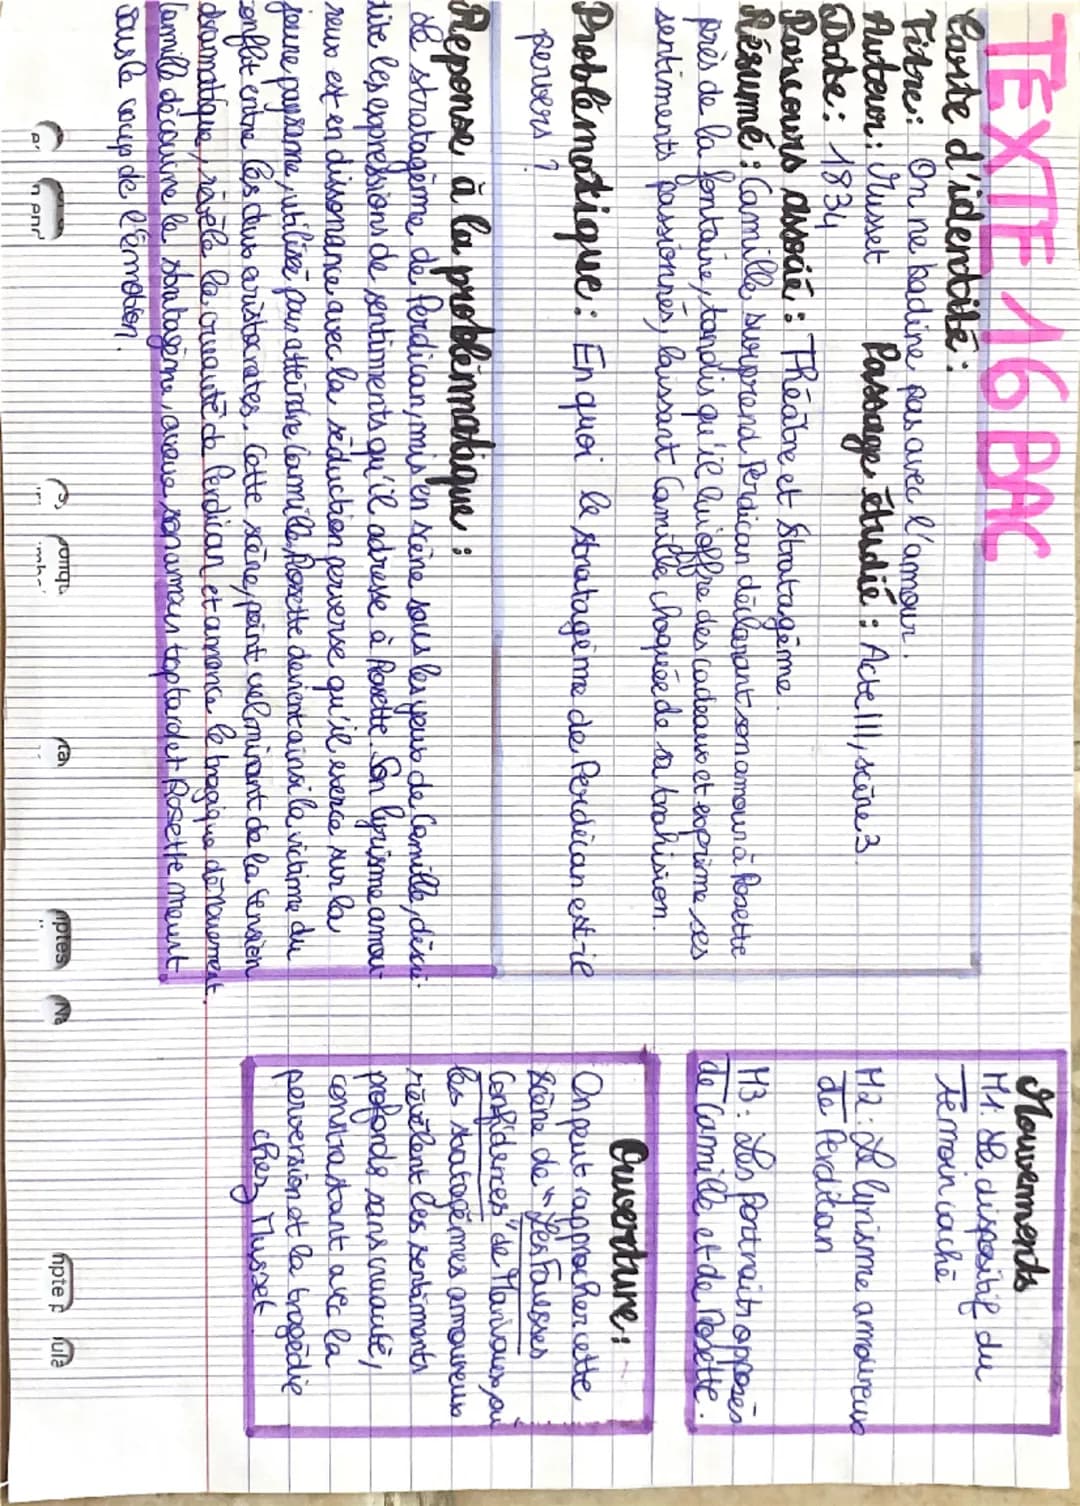 TEXTE 16 BAC
Carte d'identité :
Titre : On ne badine pas avec l'amour.
Auteur : Musset Passage étudié : Acte III, scène 3.
Date : 1834
Parcours associé : Théâtre et stratagème.
Résumé : Camille surprend Perdican déclarant son amour à Rosette
près de la fontaine, tandis qu'il lui offre des cadeaux et exprime ses
sentiments passionnés, laissant Camille choquée de sa trahision.
Problématique : En quoi le stratagème de Perdican est-il
pervers ?
Réponse à la problématique :
Le stratagème de Perdican, mis en scène sous les yeux de Camille, décré-
dite les expressions de sentiments qu'il adresse à Rosette. Son lyrisme amou-
reux est en dissonance avec la séduction perverse qu'il exerce sur la
jeune paysanne, utilisée pour atteindre Camille. Rosette devient ainsi la victime du
conflit entre les deux aristocrates. Cette scène, point culminant de la tension
dramatique, révèle la cruauté de Perdican et annonce le tragique dénouement.
Camille découvre le stratagème, avoue son amour trop tard et Rosette meurt
sous le coup de l'émotion.
Mouvements
M1 : Le dispositif du
Témoin caché
M2 : Le lyrisme amoureux
de Perdican
M3 : Les portraits opposés
de Camille et de Rosette.
Ouverture :
On peut rapprocher cette
scène de "Les Fausses
Confidences" de Marivaux, où
les stratagèmes amoureux
révèlent les sentiments
profonds sans cruauté,
constrastant avec la
perversion et la tragédie
chez Musset